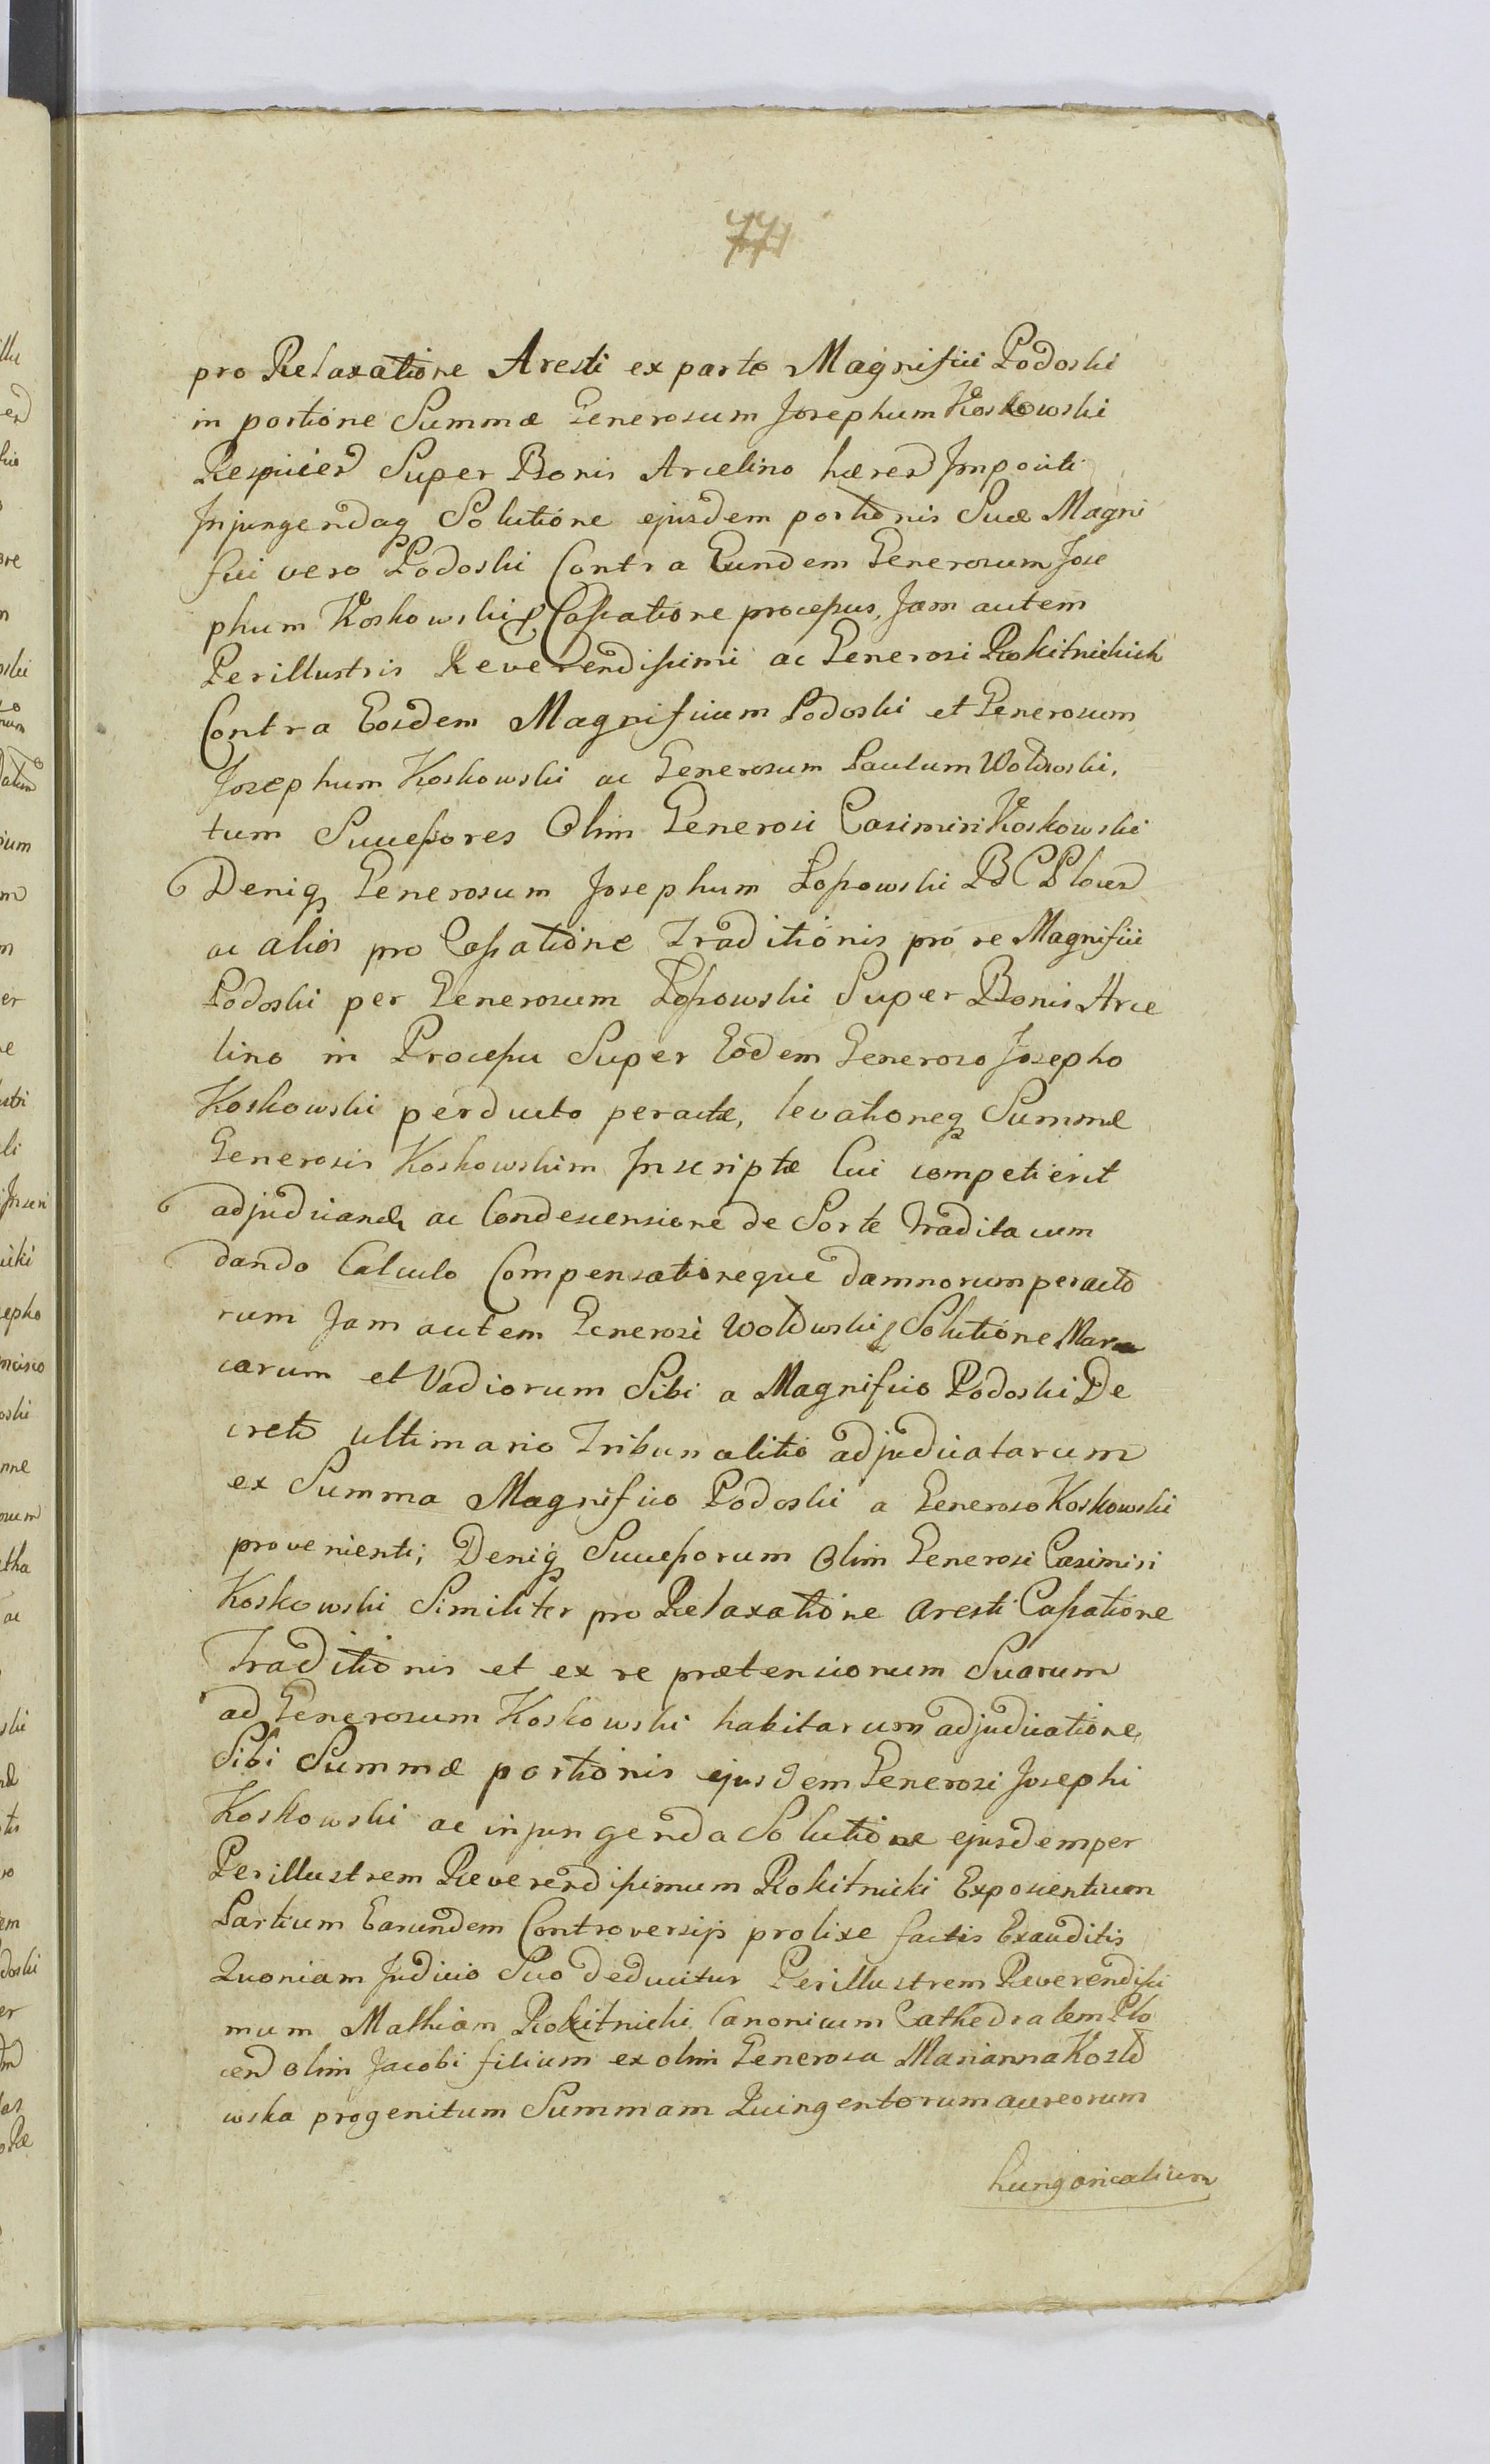 77
pro Relaxatione Aresti ex parte Magnifici Podoski
in portione Summæ Generosum Josephum Koskowski
Respicien Super Bonis Arcelino hæren Impositi
Injungendaq Solutione ejusdem portionis Suæ Magni
fici vero Podoski Contra Eundem Generosum Jose
phum Koskowski Cassatione processus, Jam autem
Perillustris Reverendissimi ac Generosi Rokitnickich
Contra Eosdem Magnificum Podoski et Generosum
Josephum Koskowski ac Generosum Paulum Woldowski,
tum Successores Olim Generosi Casimiri Koskowski
Deniq Generosum Josephum Lossowski B C Plocen
ac alios pro Cassatione Traditionis pro re Magnifici
Podoski per Generosum Lossowski Super Bonis Arce
lino in Processu Super Eodem Generoso Josepho
Koskowski perducto peractæ, levationeq Summæ
Generosis Koskowskim Inscriptæ Cui competierit
adjudicandæ ac Condescensione de Sorte tradita cum
dando Calculo Compensationeque damnorum peracto
rum Jam autem Generosi Woldowski Solutione Marca
carum et Vadiorum Sibi a Magnifico Podoski De
creto ultimario Tribunalitio adjudicatarum
ex Summa Magnifico Podoski a Generoso Koskowski
provenienti; Deniq Successorum Olim Generosi Casimiri
Koskowski Similiter pro Relaxatione Aresti Cassatione
Traditionis et ex re prætensionum Suarum
ad Generosum Koskowski habitarum adjudicatione
Sibi Summæ portionis ejusdem Generosi Josephi
Koskowski ac injungenda Solutione ejusdem per
Perillustrem Reverendissimum Rokitnicki Exposcentium
Partium Earundem Controversijs prolixe factis Exauditis
Quoniam Judicio Suo deducitur Perillustrem Reverendissi
mum Mathiam Rokitnicki Canonicum Cathedralem Plo
cen olim Jacobi filium ex olim Generosa Marianna Kosko
wska progenitum Summam Quingentorum aureorum
hungaricalium